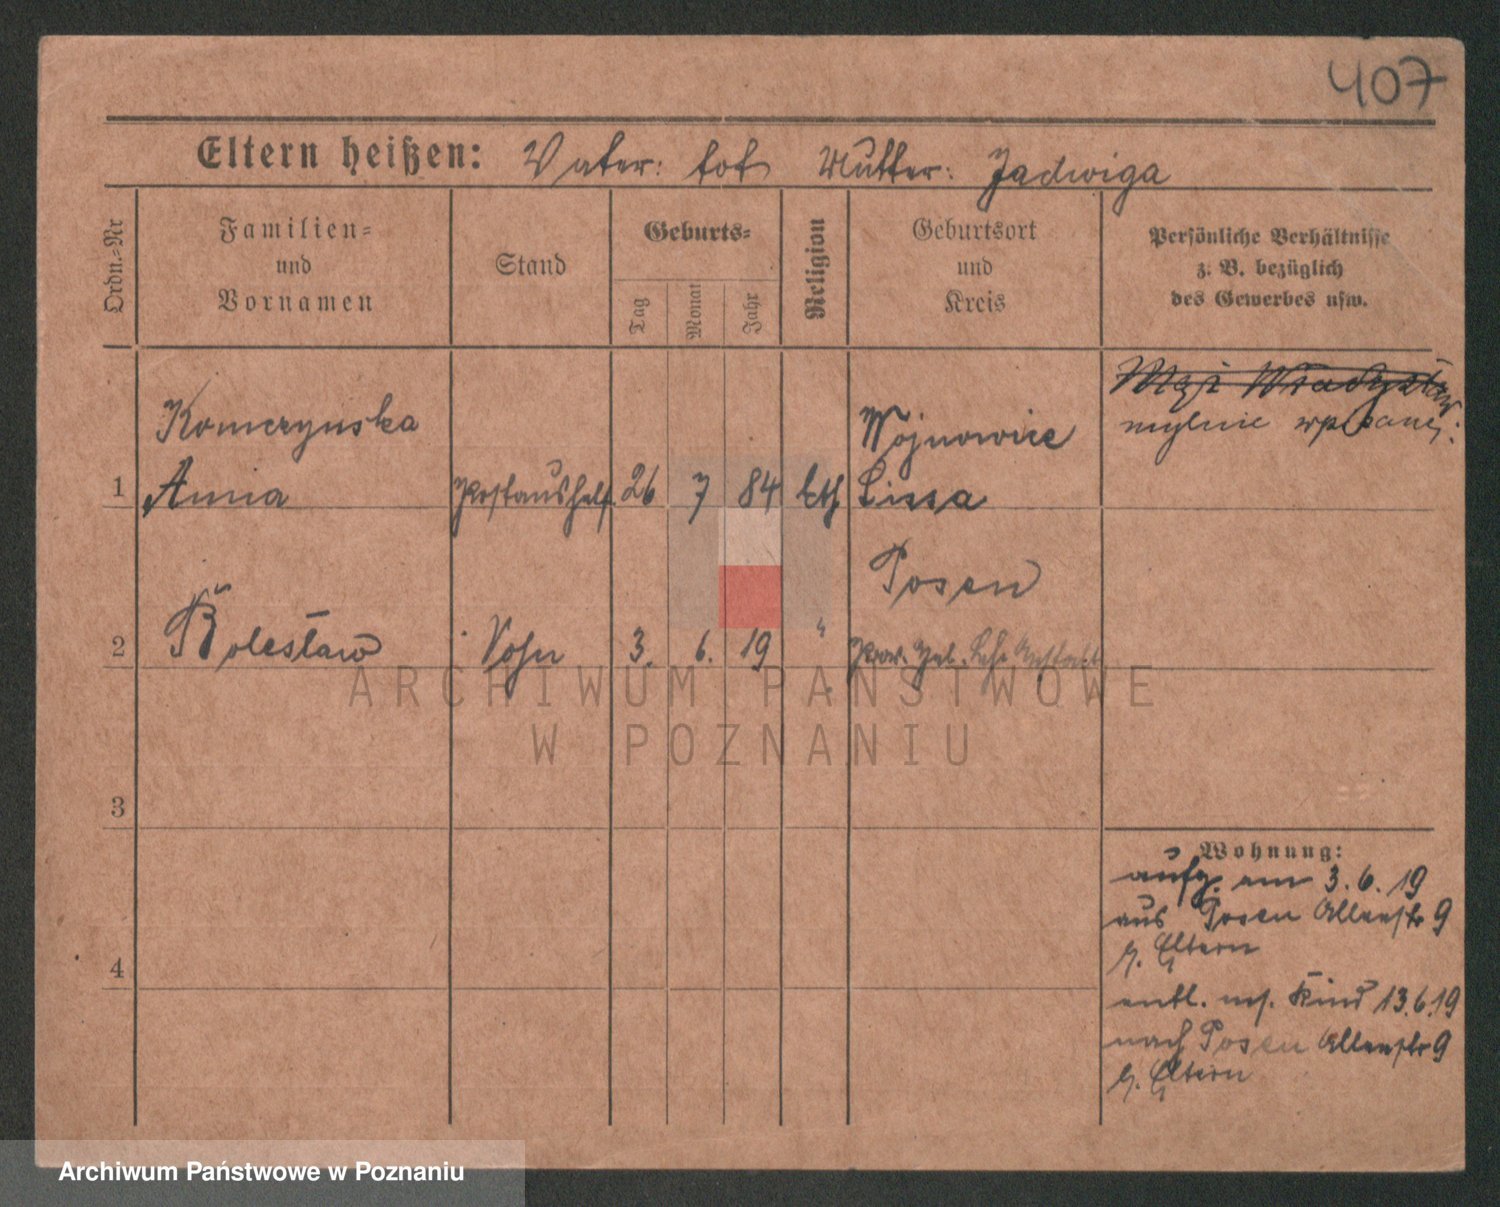 407
Eltern heißen: Vater: tot Mutter: Jadwiga
Ordn.-Nr
Familien-
und
Vornamen
Stand
Geburts-
Tag
Monat
Jahr
Religion
Geburtsort
und
Kreis
Persönliche Verhältnisse
z. B. bezüglich
des Gewerbes usw.
Mąż Władysław
mylnie wpisany.
Komczynska
Wojnowice
1 Anna Postaushelf. 26 7 84 kth Lissa
Posen
2 Bolesław Sohn 3. 6. 19 " Prov. Heb. Lehr Anstalt
3
4
Wohnung:
aufg. am 3. 6. 19
aus Posen 9
b. Eltern
entl. m. Kind 13.6.19
nach Posen 9
b. Eltern
ARCHIWUM PAŃSTWOWE
W POZNANIU
Archiwum Państwowe w Poznaniu